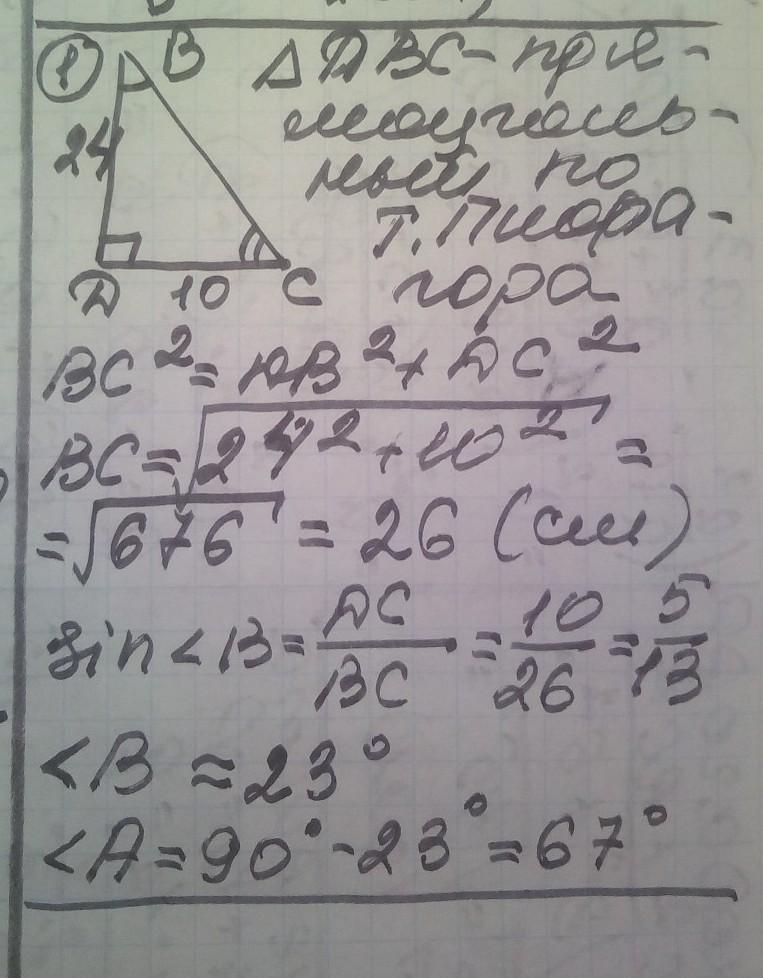 ① B △ДBC - пря-
24 моуголь-
ный по
т. Пифа-
Д 10 C гора
BC² = ДB² + ДC²
BC = √24² + 10² =
= √676 = 26 (см)
sin < B = ДC/BC = 10/26 = 5/13
< B ≈ 23°
< A = 90° - 23° = 67°